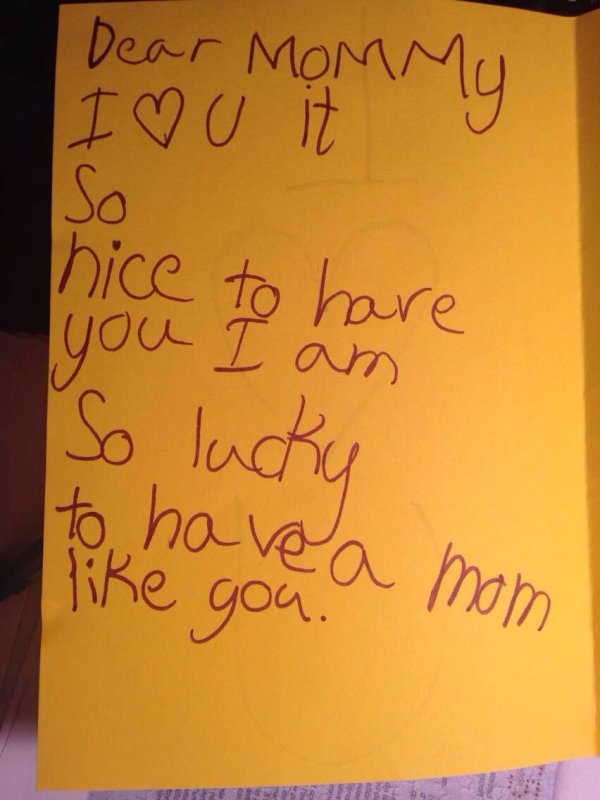 Dear MOMMy
I ♡ U it
So
nice to have
you I am
So lucky
to have a mom
like you.